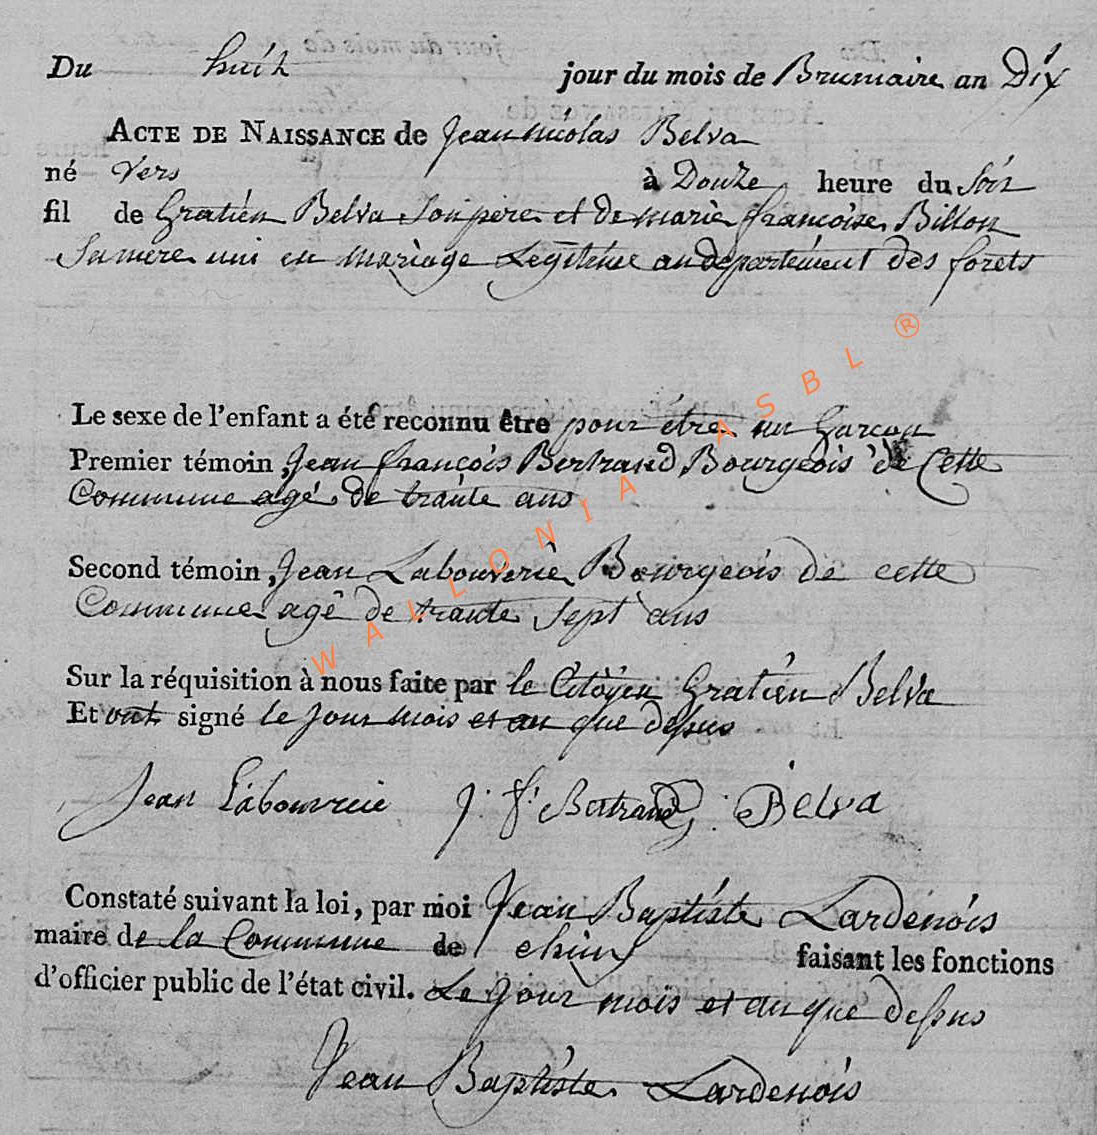 Du huit jour du mois de Brumaire an Dix
ACTE DE NAISSANCE de Jean nicolas Belva
né vers à Douze heure du soir
fil de Gratien Belva Son père et de marie francoise Billon
Sa mere uni en mariage Legitime au departement des forets
Le sexe de l'enfant a été reconnu être pour être un Garcon
Premier témoin, Jean françois Bertrand Bourgeois de Cette
Commune agé de trante ans
Second témoin, Jean Labouverie Bourgeois de cette
Commune agé de trante sept ans
Sur la réquisition à nous faite par le Citoyen Gratien Belva
Et ont signé le jour mois et an que dessus
Jean Labouverie J. f. Bertrand Belva
Constaté suivant la loi, par moi Jean Baptiste Lardenois
maire de la Commune de chiny faisant les fonctions
d'officier public de l'état civil. Le Jour mois et an que dessus
Jean Baptiste Lardenois
WALLONIA ASBL ®